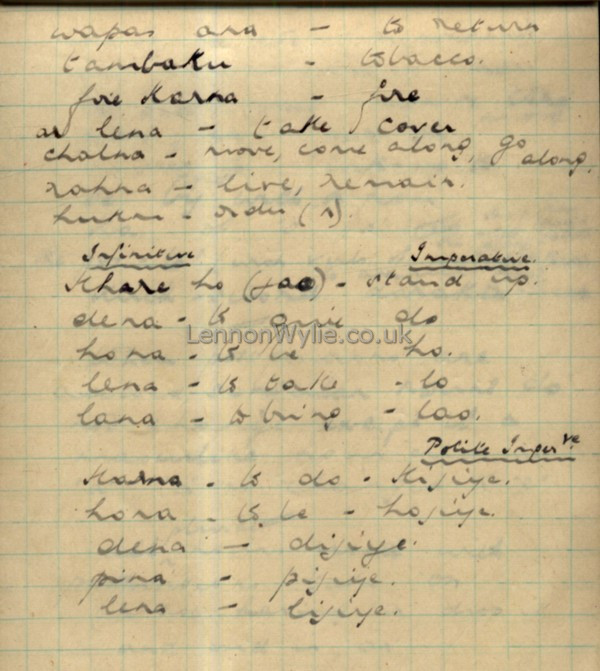 wapas ana - to return
tambaku - tobacco.
fire Karna - fire
ar lena - take cover
chalna - move, come along, go along.
rahna - live, remain.
hukm - order (n).
Infinitive Imperative.
Khare ho (jao) - stand up.
dena - to give do
LennonWylie.co.uk
hona - to be ho.
lena - to take - lo
lana - to bring - lao.
Polite Imperve
Karna - to do - Kijiye.
hona - to be - hojiye.
dena - dijiye.
pina - pijiye.
lena - lijiye.